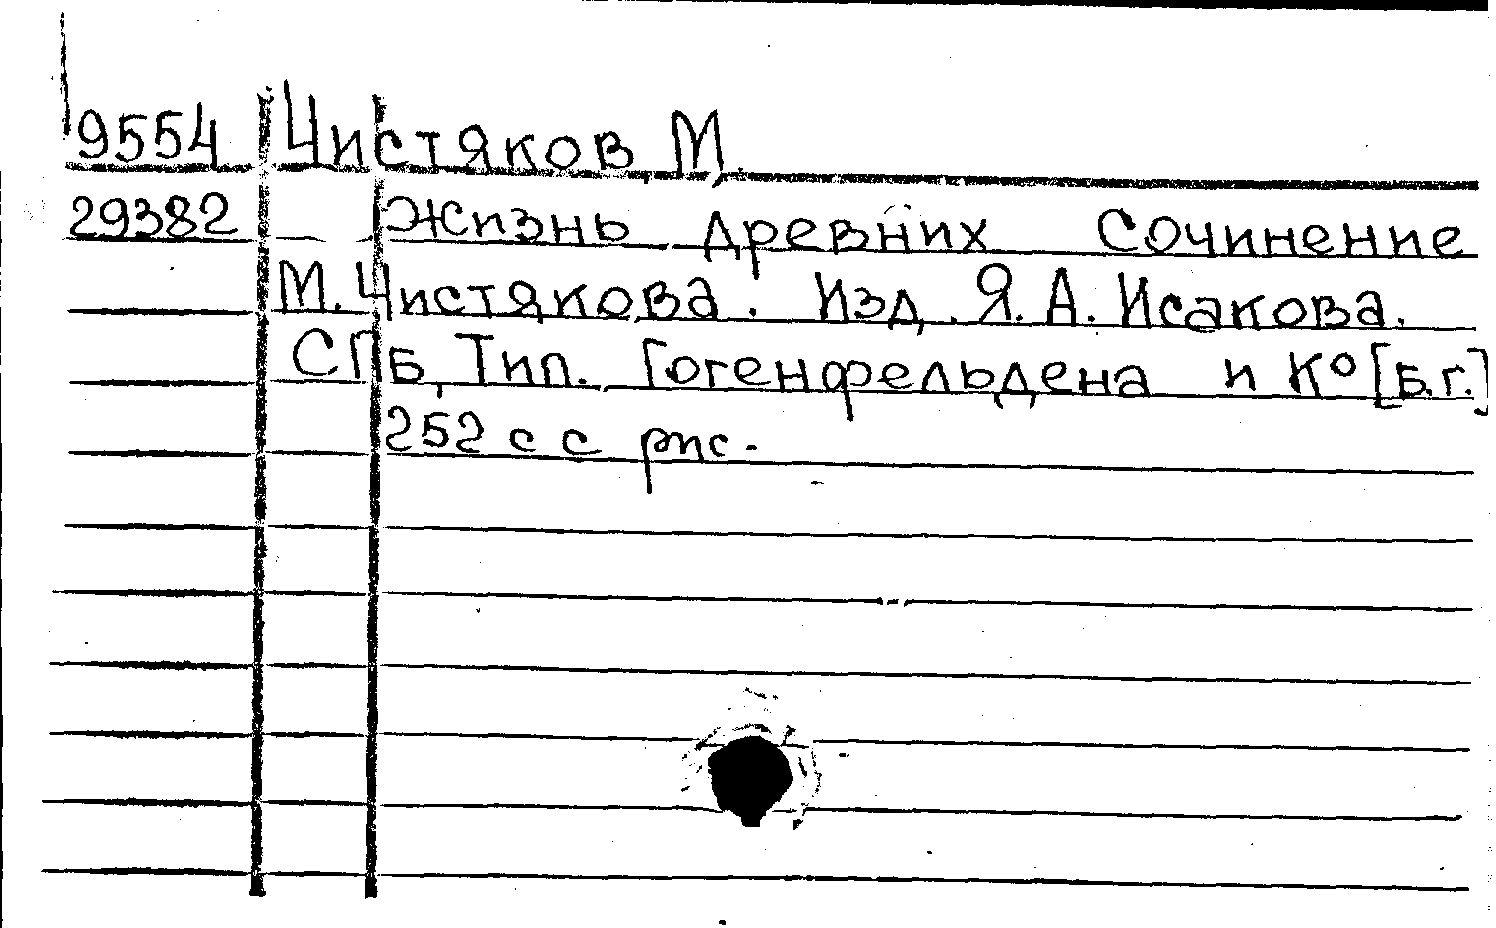 9554 Чистяков, М.
29382 Жизнь древних Сочинение
М. Чистякова. Изд. Я. А. Исакова.
СПБ, Тип. Гогенфельдена и К° [Б.г.]
252 с с рис.